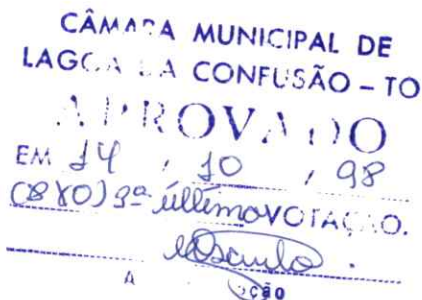 CÂMARA MUNICIPAL DE
LAGOA DA CONFUSÃO – TO
APROVADO
EM 14 / 10 / 98
(8X0) 3ª última VOTAÇÃO.